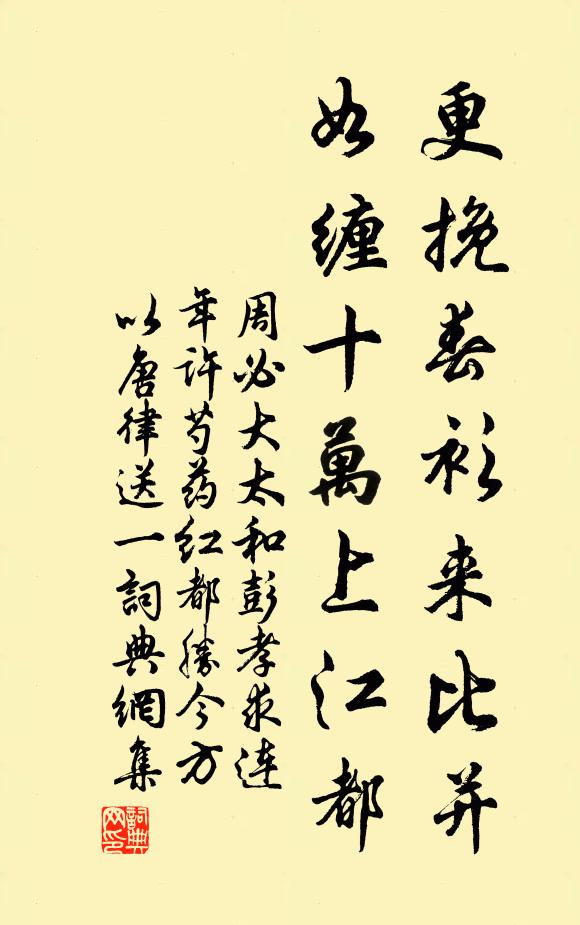 更挽春衫来比并
如缠十萬上江都
周必大太和彭孝求连
年许芍药红都勝今方
以唐律送一詞典網集
詞典
网印